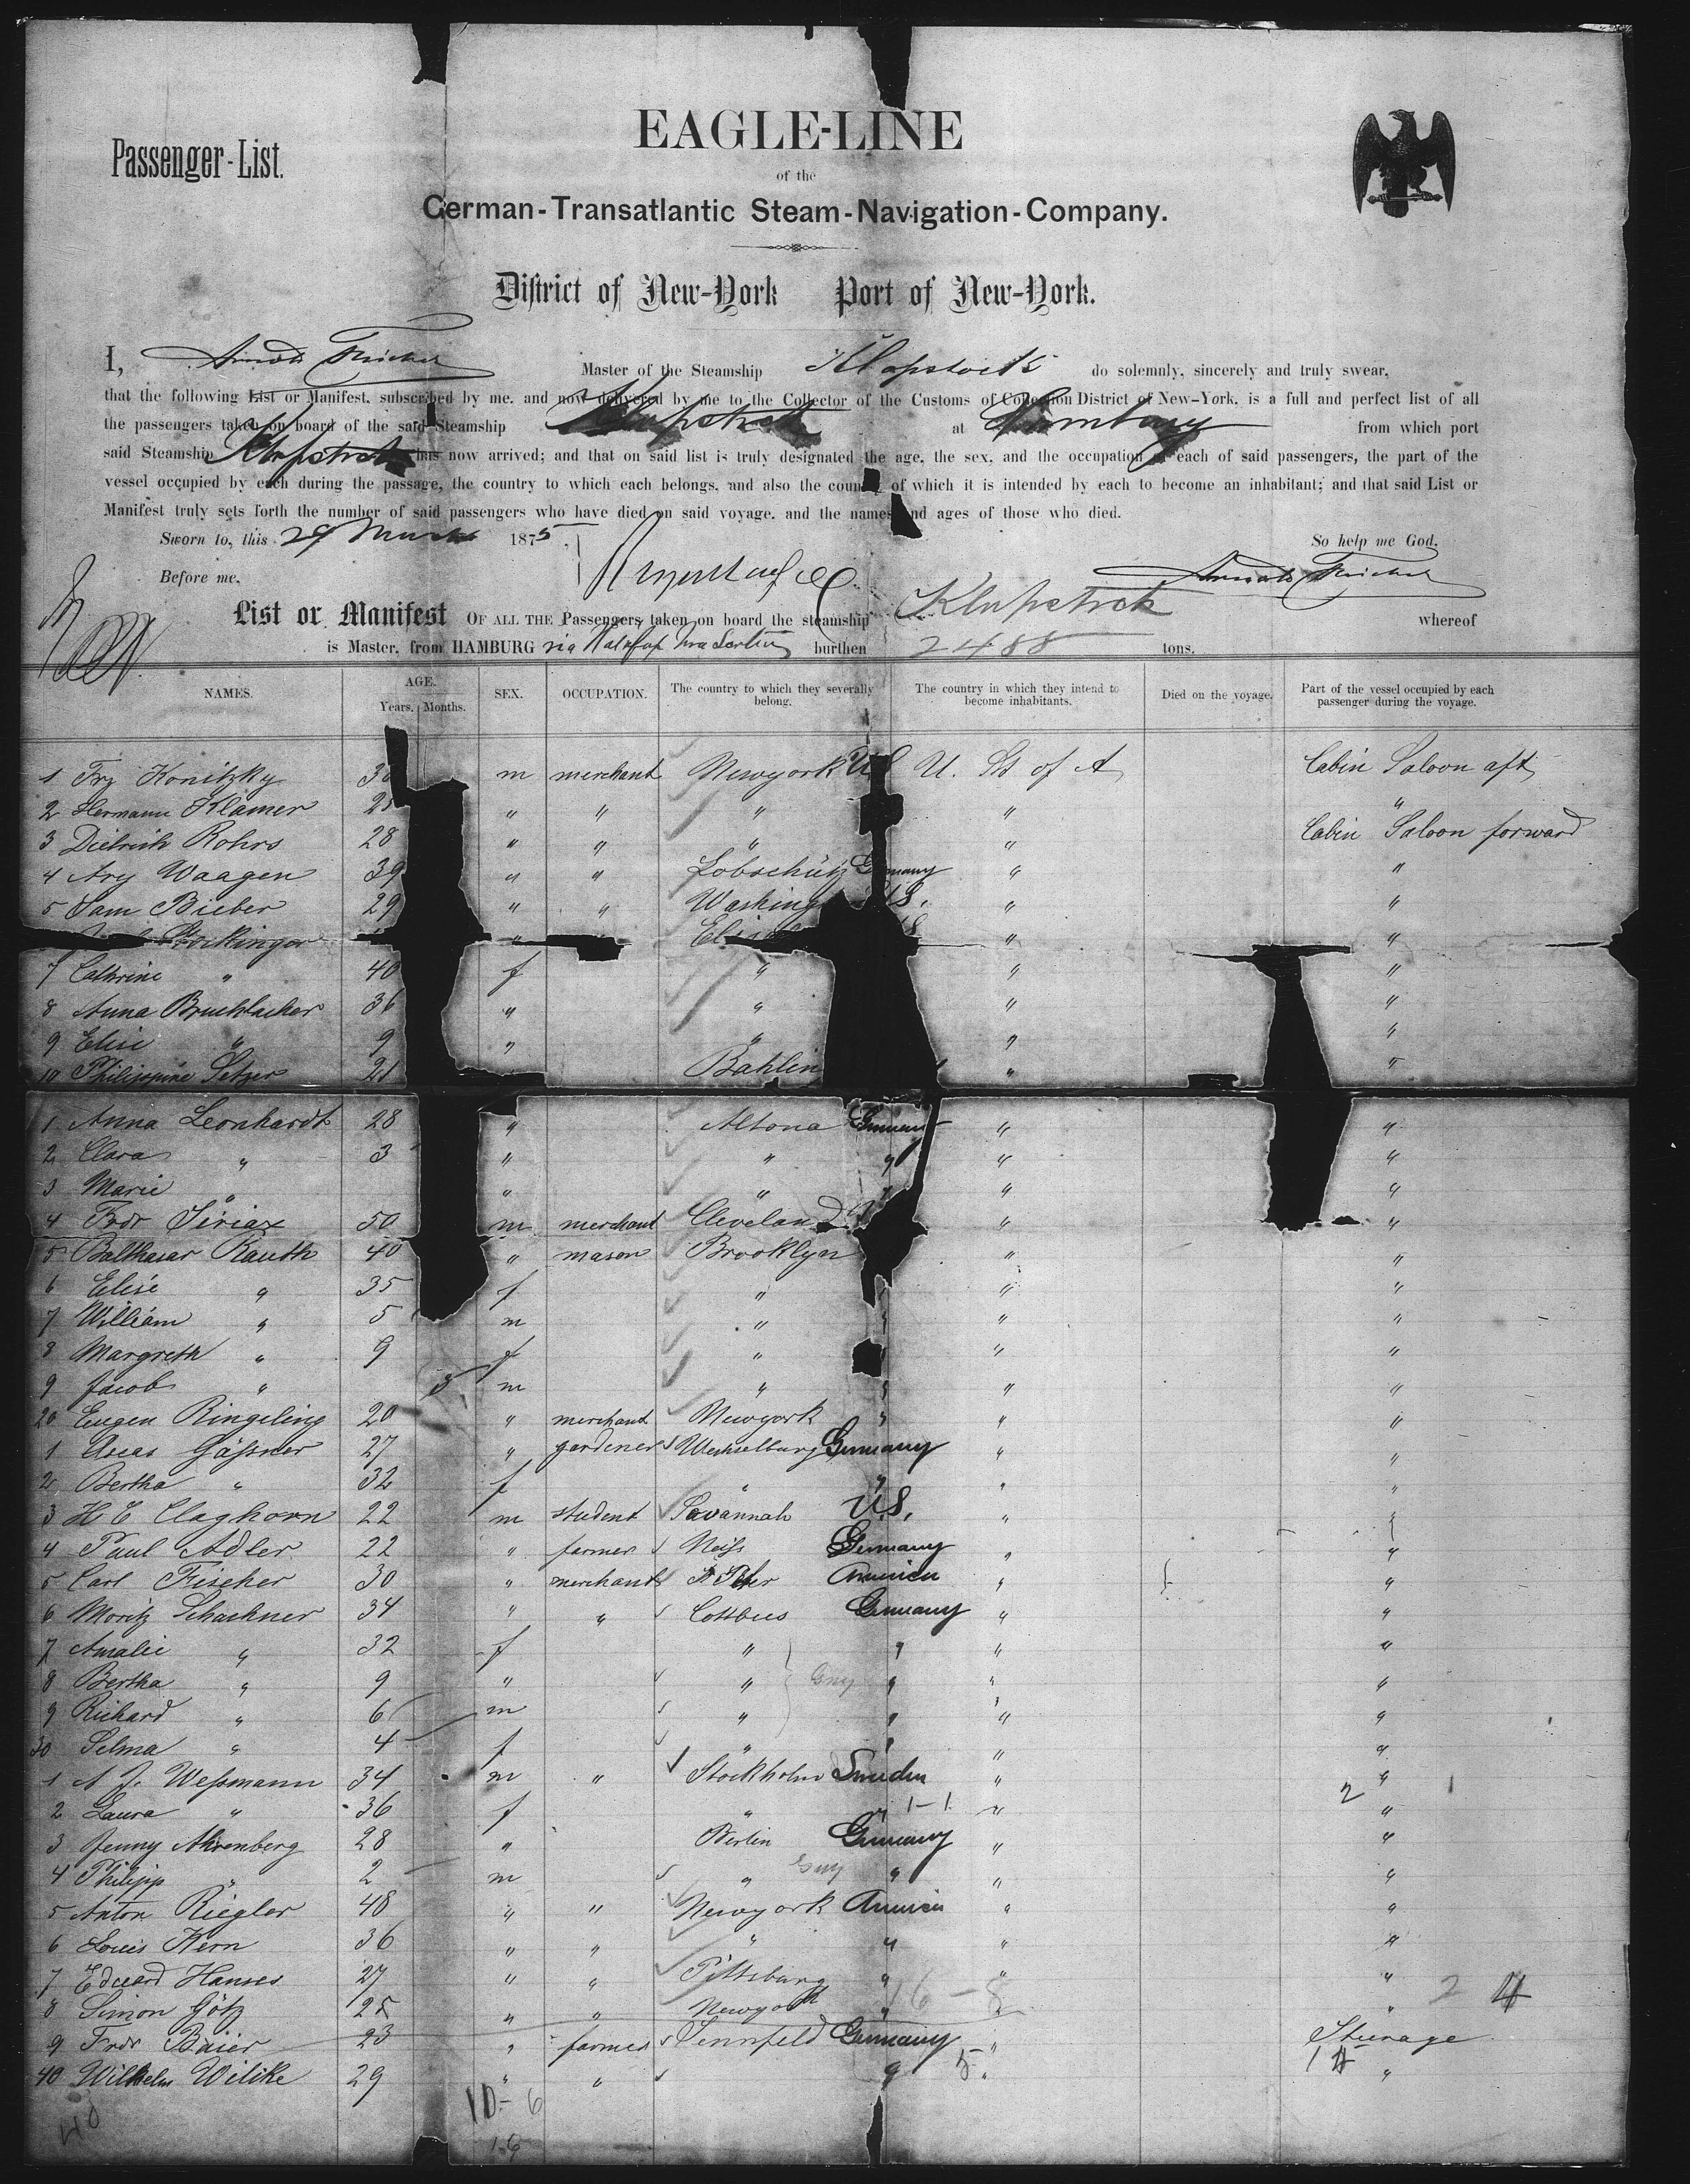 Passenger-List.
EAGLE-LINE
of the
German-Transatlantic Steam-Navigation-Company.
District of New-York Port of New-York.
I, Master of the Steamship Klopstock do solemnly, sincerely and truly swear,
that the following List or Manifest, subscribed by me, and now delivered by me to the Collector of the Customs of Collection District of New-York, is a full and perfect list of all
the passengers taken on board of the said Steamship Klopstock at Hamburg from which port
said Steamship Klopstock has now arrived; and that on said list is truly designated the age, the sex, and the occupation of each of said passengers, the part of the
vessel occupied by each during the passage, the country to which each belongs, and also the country of which it is intended by each to become an inhabitant; and that said List or
Manifest truly sets forth the number of said passengers who have died on said voyage, and the names and ages of those who died.
Sworn to, this 29 March 1875. So help me God.
Before me,
List or Manifest OF ALL THE Passengers taken on board the steamship Klopstock whereof
is Master, from HAMBURG via burthen 2488 tons.
NAMES. AGE. Years. Months. SEX. OCCUPATION. The country to which they severally belong. The country in which they intend to become inhabitants. Died on the voyage. Part of the vessel occupied by each passenger during the voyage.
1 Frz Konitzky m merchant Newyork U. St of A Cabin Saloon aft
2 Hermann Klamer " " " " "
3 Dietrich Rohrs 28 " " " " Cabin Saloon forward
4 Ary Waagen 39 " " Lobschütz Germany " "
5 Sam Bieber 29 " " " "
" " "
7 Cathrine " 40 f " " "
8 Anna Bruchlacher 36 " " " "
9 Elise " 9 " " " "
10 Philippine Setzer 21 Bahlin " "
1 Anna Leonhardt 28 " Altona Germany " "
2 Clara " 3 " " " " "
3 Marie " " " " " "
4 Fredr Siriax 50 m merchant Cleveland " "
5 Balthasar Rauth 40 " mason Brooklyn " "
6 Elise " 35 f " " "
7 William " 5 m " " " "
8 Margreth " 9 f " " "
9 Jacob " 3 m " " " "
20 Eugen Ringeling 20 " merchant Newyork " " "
1 Gäßner 27 " gardener Wechselburg Germany " "
2 Bertha " 32 f " " " "
3 H E Claghorn 22 m student Savannah U.S. " "
4 Paul Adler 22 " farmer Neiß Germany " "
5 Carl Fischer 30 " merchant America " "
6 Moritz Schachner 34 " " Cottbus Germany " "
7 Amalie " 32 f " " " "
8 Bertha " 9 " " Gmy " " "
9 Richard " 6 m " " " "
30 Selma " 4 f " " " "
1 A J. Weßmann 34 m " Stockholm Sweden " "
2 Laura " 36 f " " 1-1 " "
3 Jenny Ahrenberg 28 " Berlin Germany " "
4 Philipp " 2 m " Gmy " " "
5 Anton Riegler 48 " " Newyork America " "
6 Louis Kern 36 " " " " " "
7 Eduard Hanses 27 " " Pittsburg " " "
8 Simon Götz 25 " " Newyork " " "
9 Fredr Baier 23 " farmer Sennfeld Germany " Steerage
40 Wilhelm Wilike 29 " " " " "
40 10-6